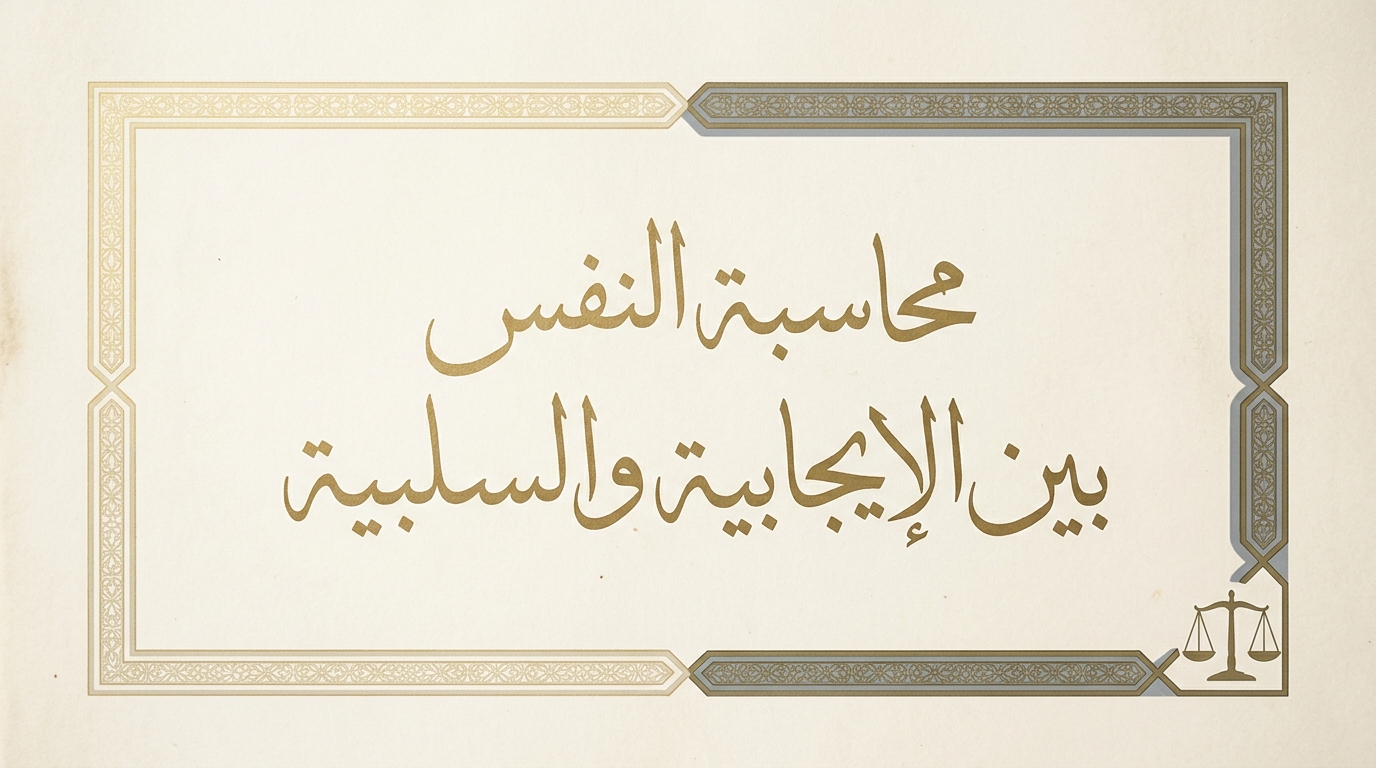 محاسبة النفس
بين الإيجابية والسلبية